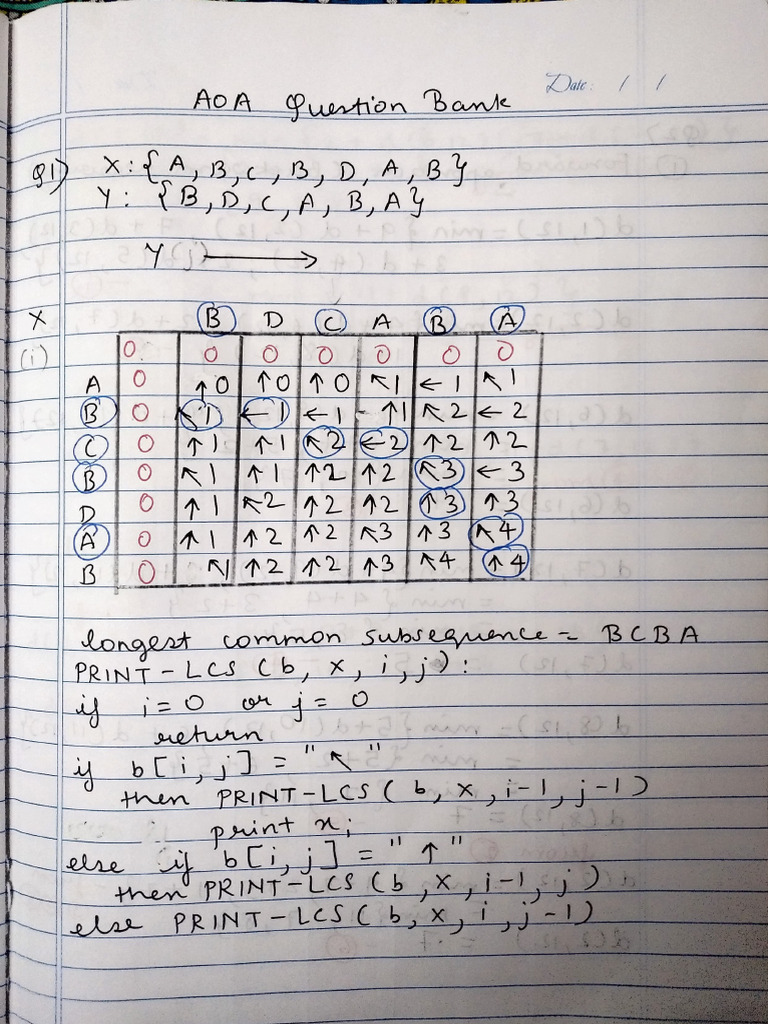 Date: / /
AOA Question Bank
Q1) X: {A, B, C, B, D, A, B}
Y: {B, D, C, A, B, A}
Y (j) →
X B D C A B A
(i) 0 0 0 0 0 0 0
A 0 ↑0 ↑0 ↑0 ↖1 ←1 ↖1
B 0 ↖1 ←1 ←1 ↑1 ↖2 ←2
C 0 ↑1 ↑1 ↖2 ←2 ↑2 ↑2
B 0 ↖1 ↑1 ↑2 ↑2 ↖3 ←3
D 0 ↑1 ↖2 ↑2 ↑2 ↑3 ↑3
A 0 ↑1 ↑2 ↑2 ↖3 ↑3 ↖4
B 0 ↖1 ↑2 ↑2 ↑3 ↖4 ↑4
longest common subsequence = BCBA
PRINT-LCS (b, x, i, j):
if i=0 or j=0
return
if b[i, j] = "↖"
then PRINT-LCS (b, x, i-1, j-1)
print xi
else if b[i, j] = "↑"
then PRINT-LCS (b, x, i-1, j)
else PRINT-LCS (b, x, i, j-1)